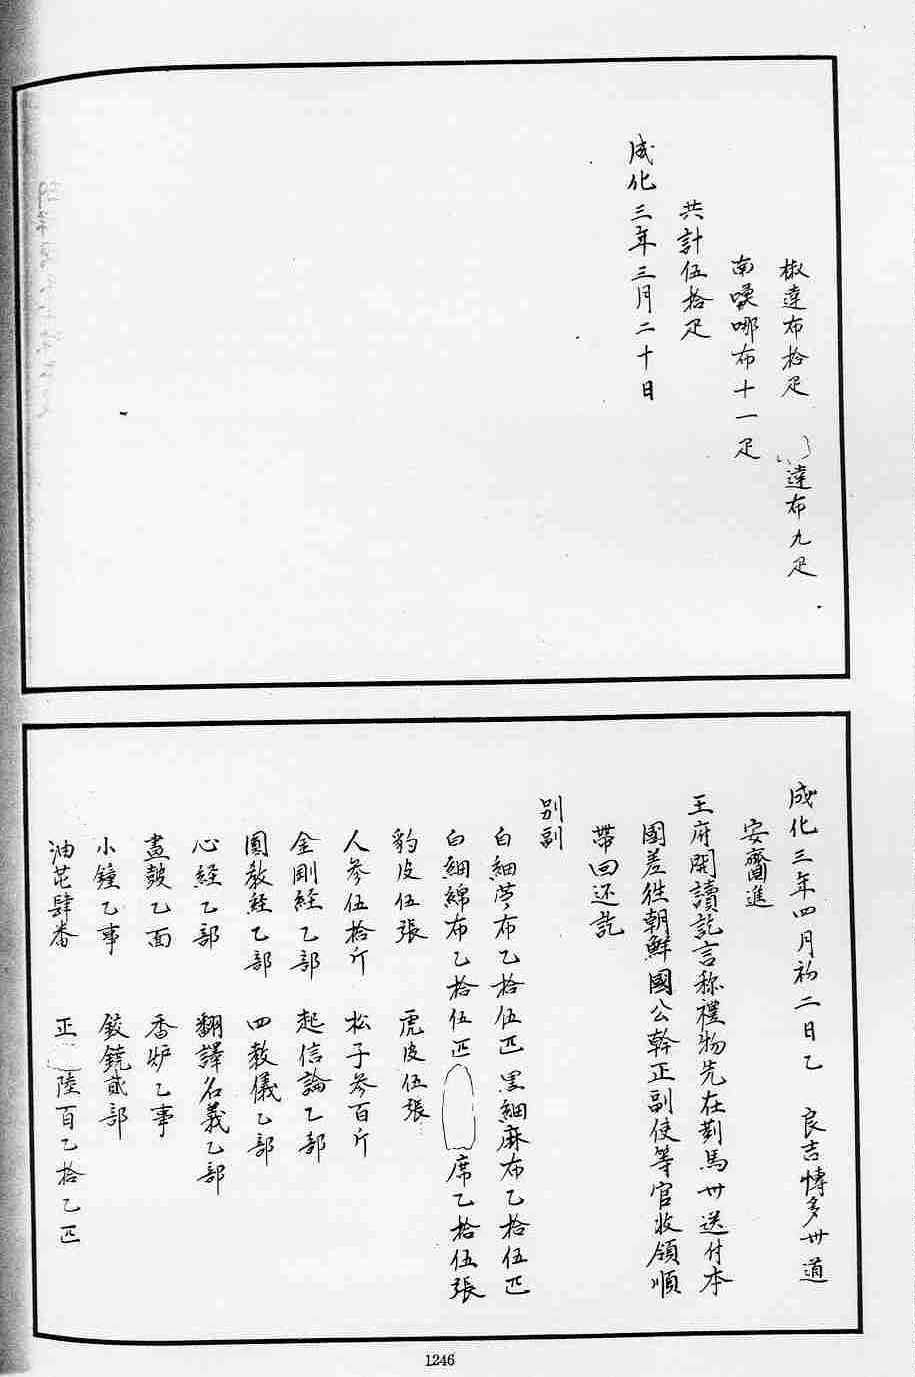 椒達布拾疋　達布九疋
南嘜哪布十一疋
共計伍拾疋
成化三年三月二十日
成化三年四月初二日乙　良吉慱多卅道
安齎進
王府開讀訖言称禮物先在對馬卅送付本
國差徃朝鮮國公幹正副使等官收領順
帶回还訖
別副
白細苧布乙拾伍匹 黒細麻布乙拾伍匹
白細綿布乙拾伍匹　席乙拾伍張
豹皮伍張　虎皮伍張
人參伍拾斤　松子參百斤
金剛経乙部　起信論乙部
圓教経乙部　四教儀乙部
心経乙部　翻譯名義乙部
畫皷乙面　香炉乙事
小鐘乙事　鉸鐃貳部
油芚肆番　正　陸百乙拾乙匹
1246